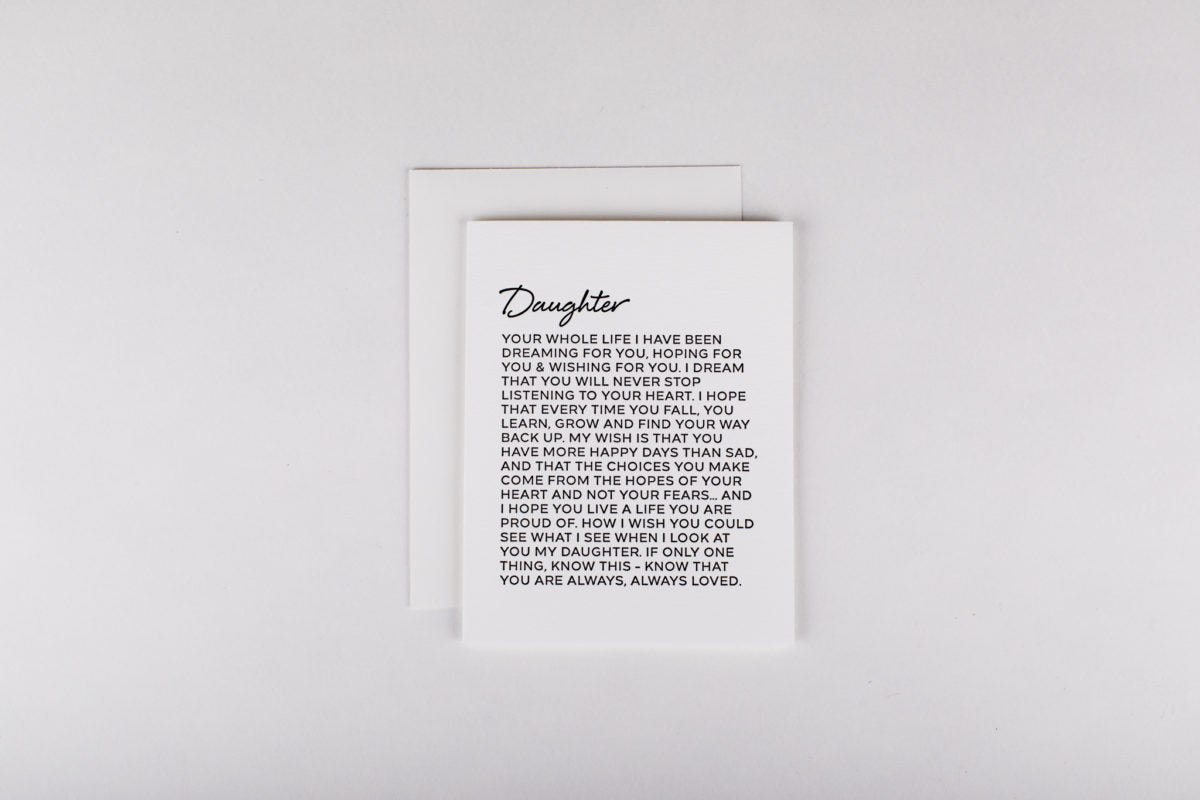 Daughter
YOUR WHOLE LIFE I HAVE BEEN
DREAMING FOR YOU, HOPING FOR
YOU & WISHING FOR YOU. I DREAM
THAT YOU WILL NEVER STOP
LISTENING TO YOUR HEART. I HOPE
THAT EVERY TIME YOU FALL, YOU
LEARN, GROW AND FIND YOUR WAY
BACK UP. MY WISH IS THAT YOU
HAVE MORE HAPPY DAYS THAN SAD,
AND THAT THE CHOICES YOU MAKE
COME FROM THE HOPES OF YOUR
HEART AND NOT YOUR FEARS... AND
I HOPE YOU LIVE A LIFE YOU ARE
PROUD OF. HOW I WISH YOU COULD
SEE WHAT I SEE WHEN I LOOK AT
YOU MY DAUGHTER. IF ONLY ONE
THING, KNOW THIS - KNOW THAT
YOU ARE ALWAYS, ALWAYS LOVED.